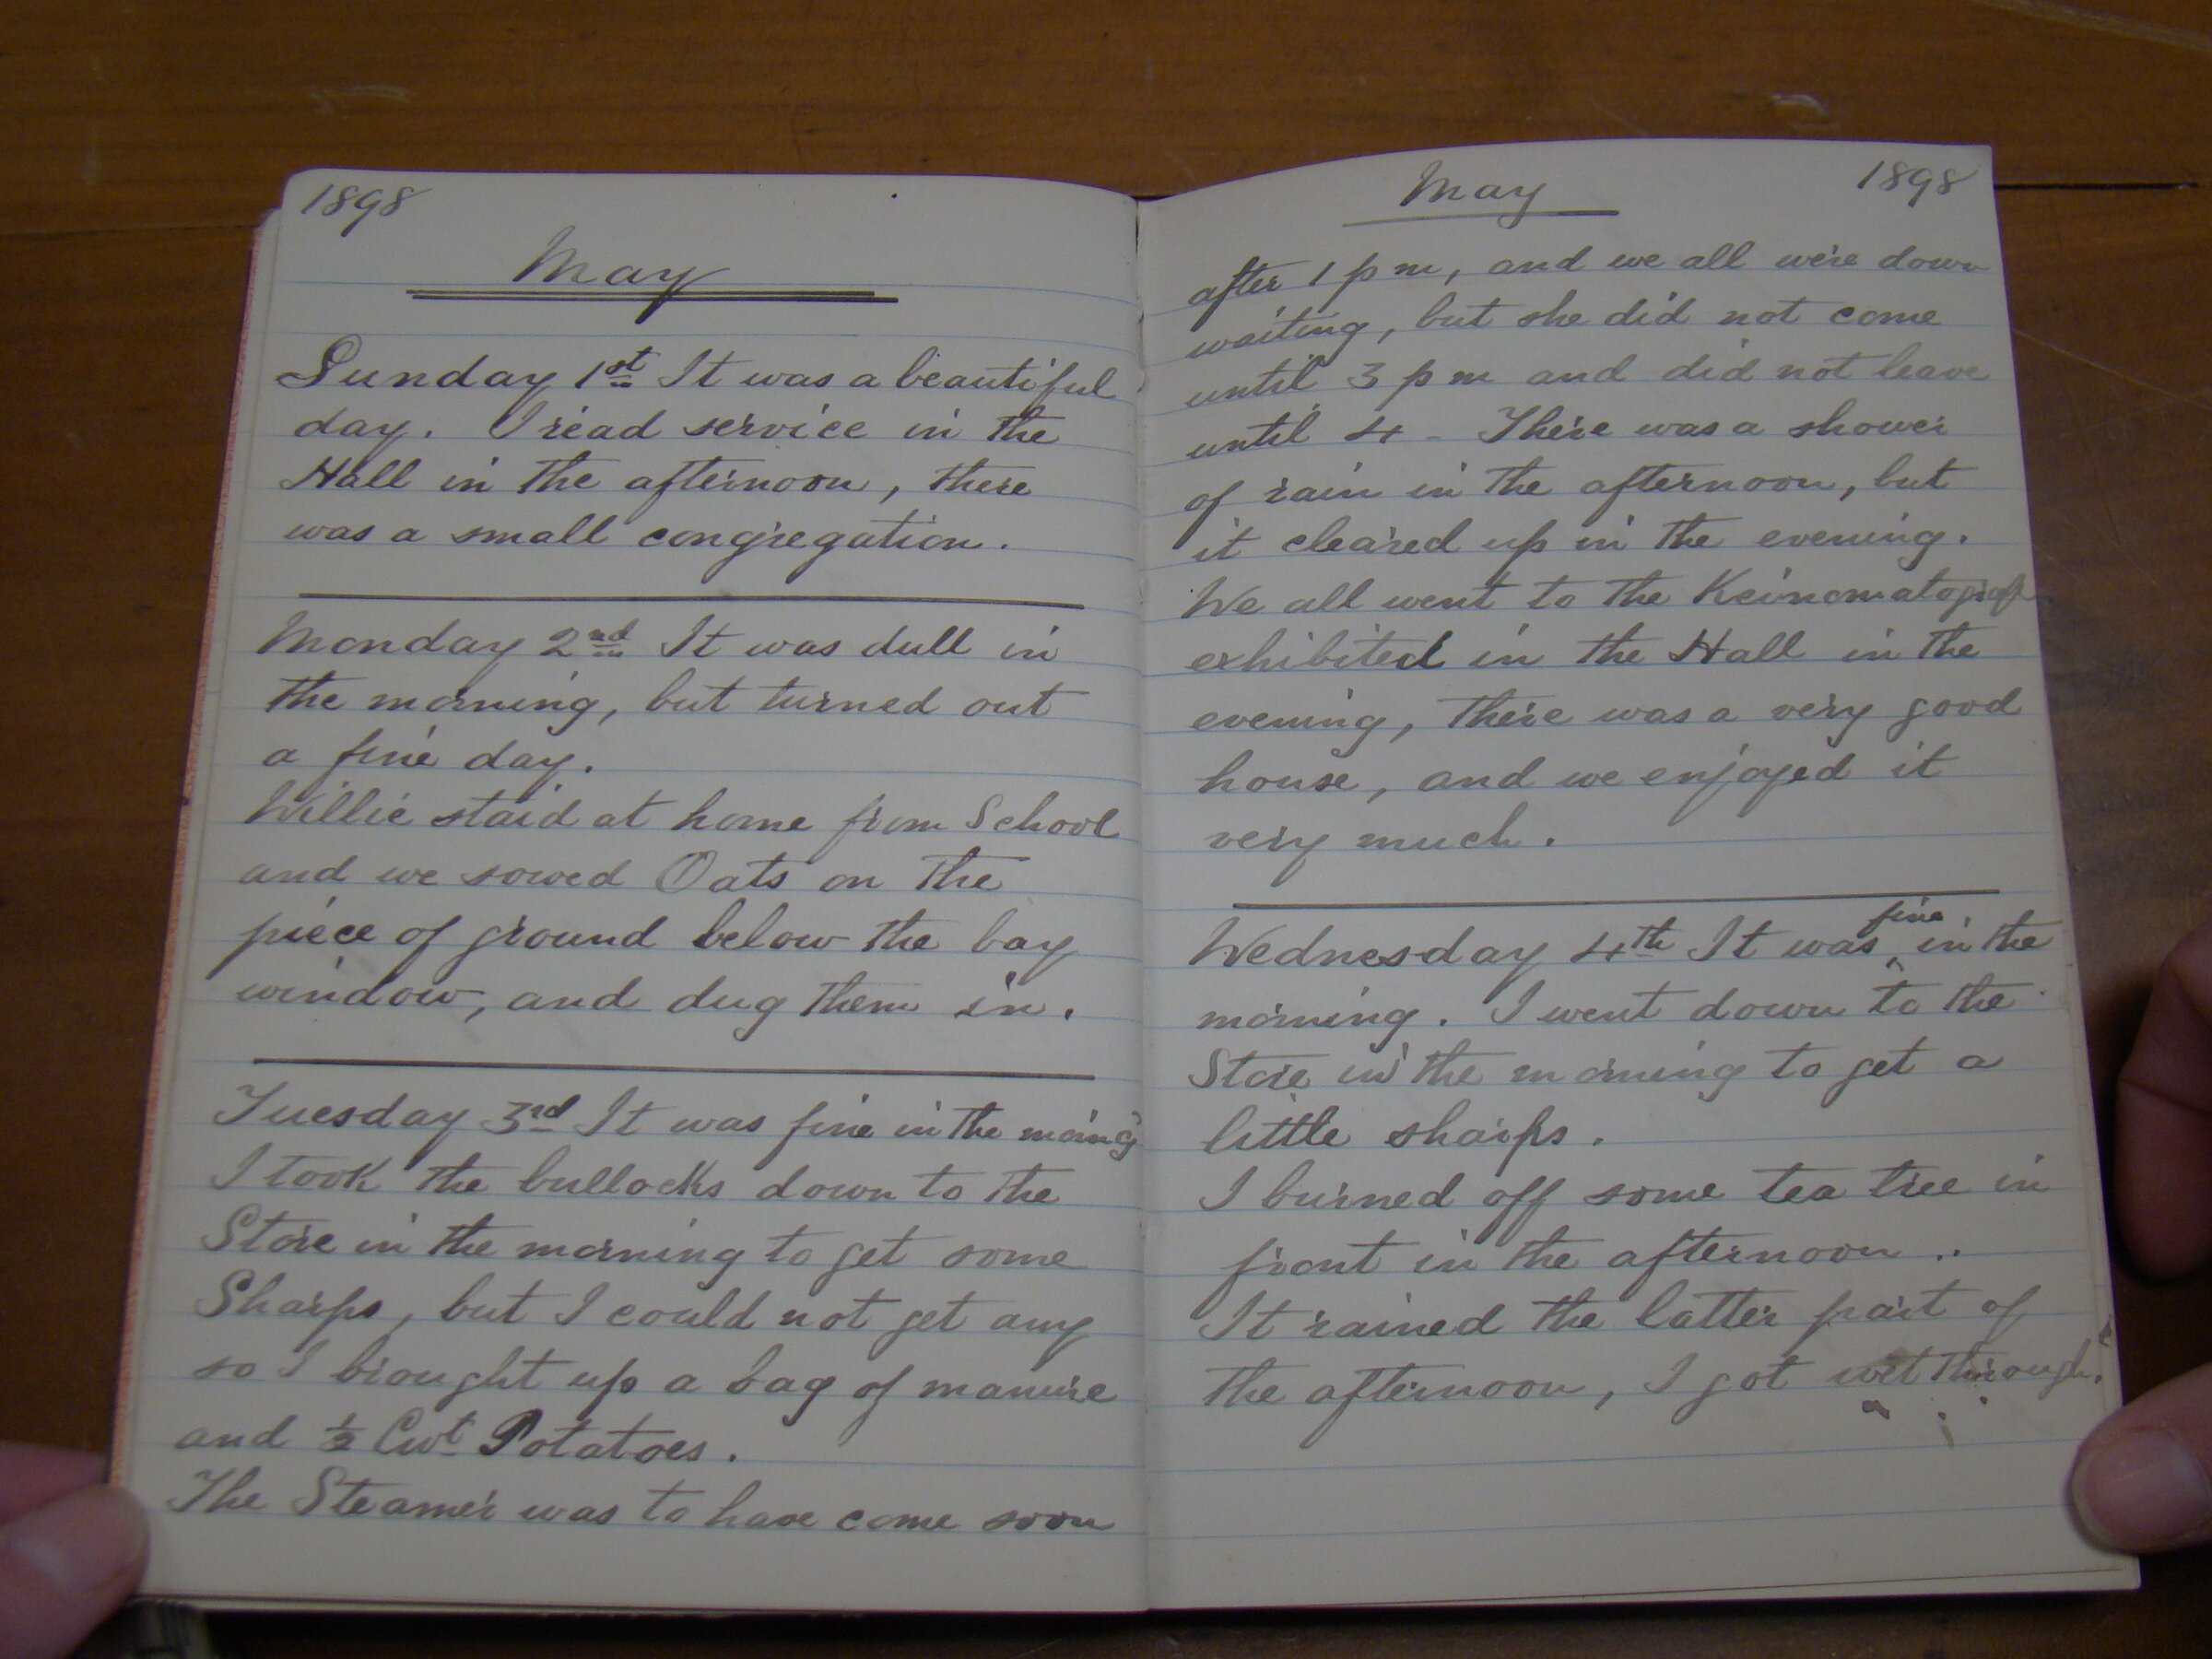 1898
May
Sunday 1st It was a beautiful
day. I read service in the
Hall in the afternoon, there
was a small congregation.
Monday 2nd It was dull in
the morning, but turned out
a fine day.
Willie staid at home from School
and we sowed Oats on the
piece of ground below the bay
window, and dug them in.
Tuesday 3rd It was fine in the morning
I took the bullocks down to the
Store in the morning to get some
Sharps, but I could not get any
so I brought up a bag of manure
and ½ Cwt Potatoes.
The Steamer was to have come soon
May 1898
after 1 p m, and we all were down
waiting, but she did not come
until 3 p m and did not leave
until 4 - There was a shower
of rain in the afternoon, but
it cleared up in the evening.
We all went to the Keinomatograph
exhibited in the Hall in the
evening, there was a very good
house, and we enjoyed it
very much.
Wednesday 4th It was fine in the
morning. I went down to the
Store in the morning to get a
little sharps.
I burned off some tea tree in
front in the afternoon..
It rained the latter part of
the afternoon, I got wet through.